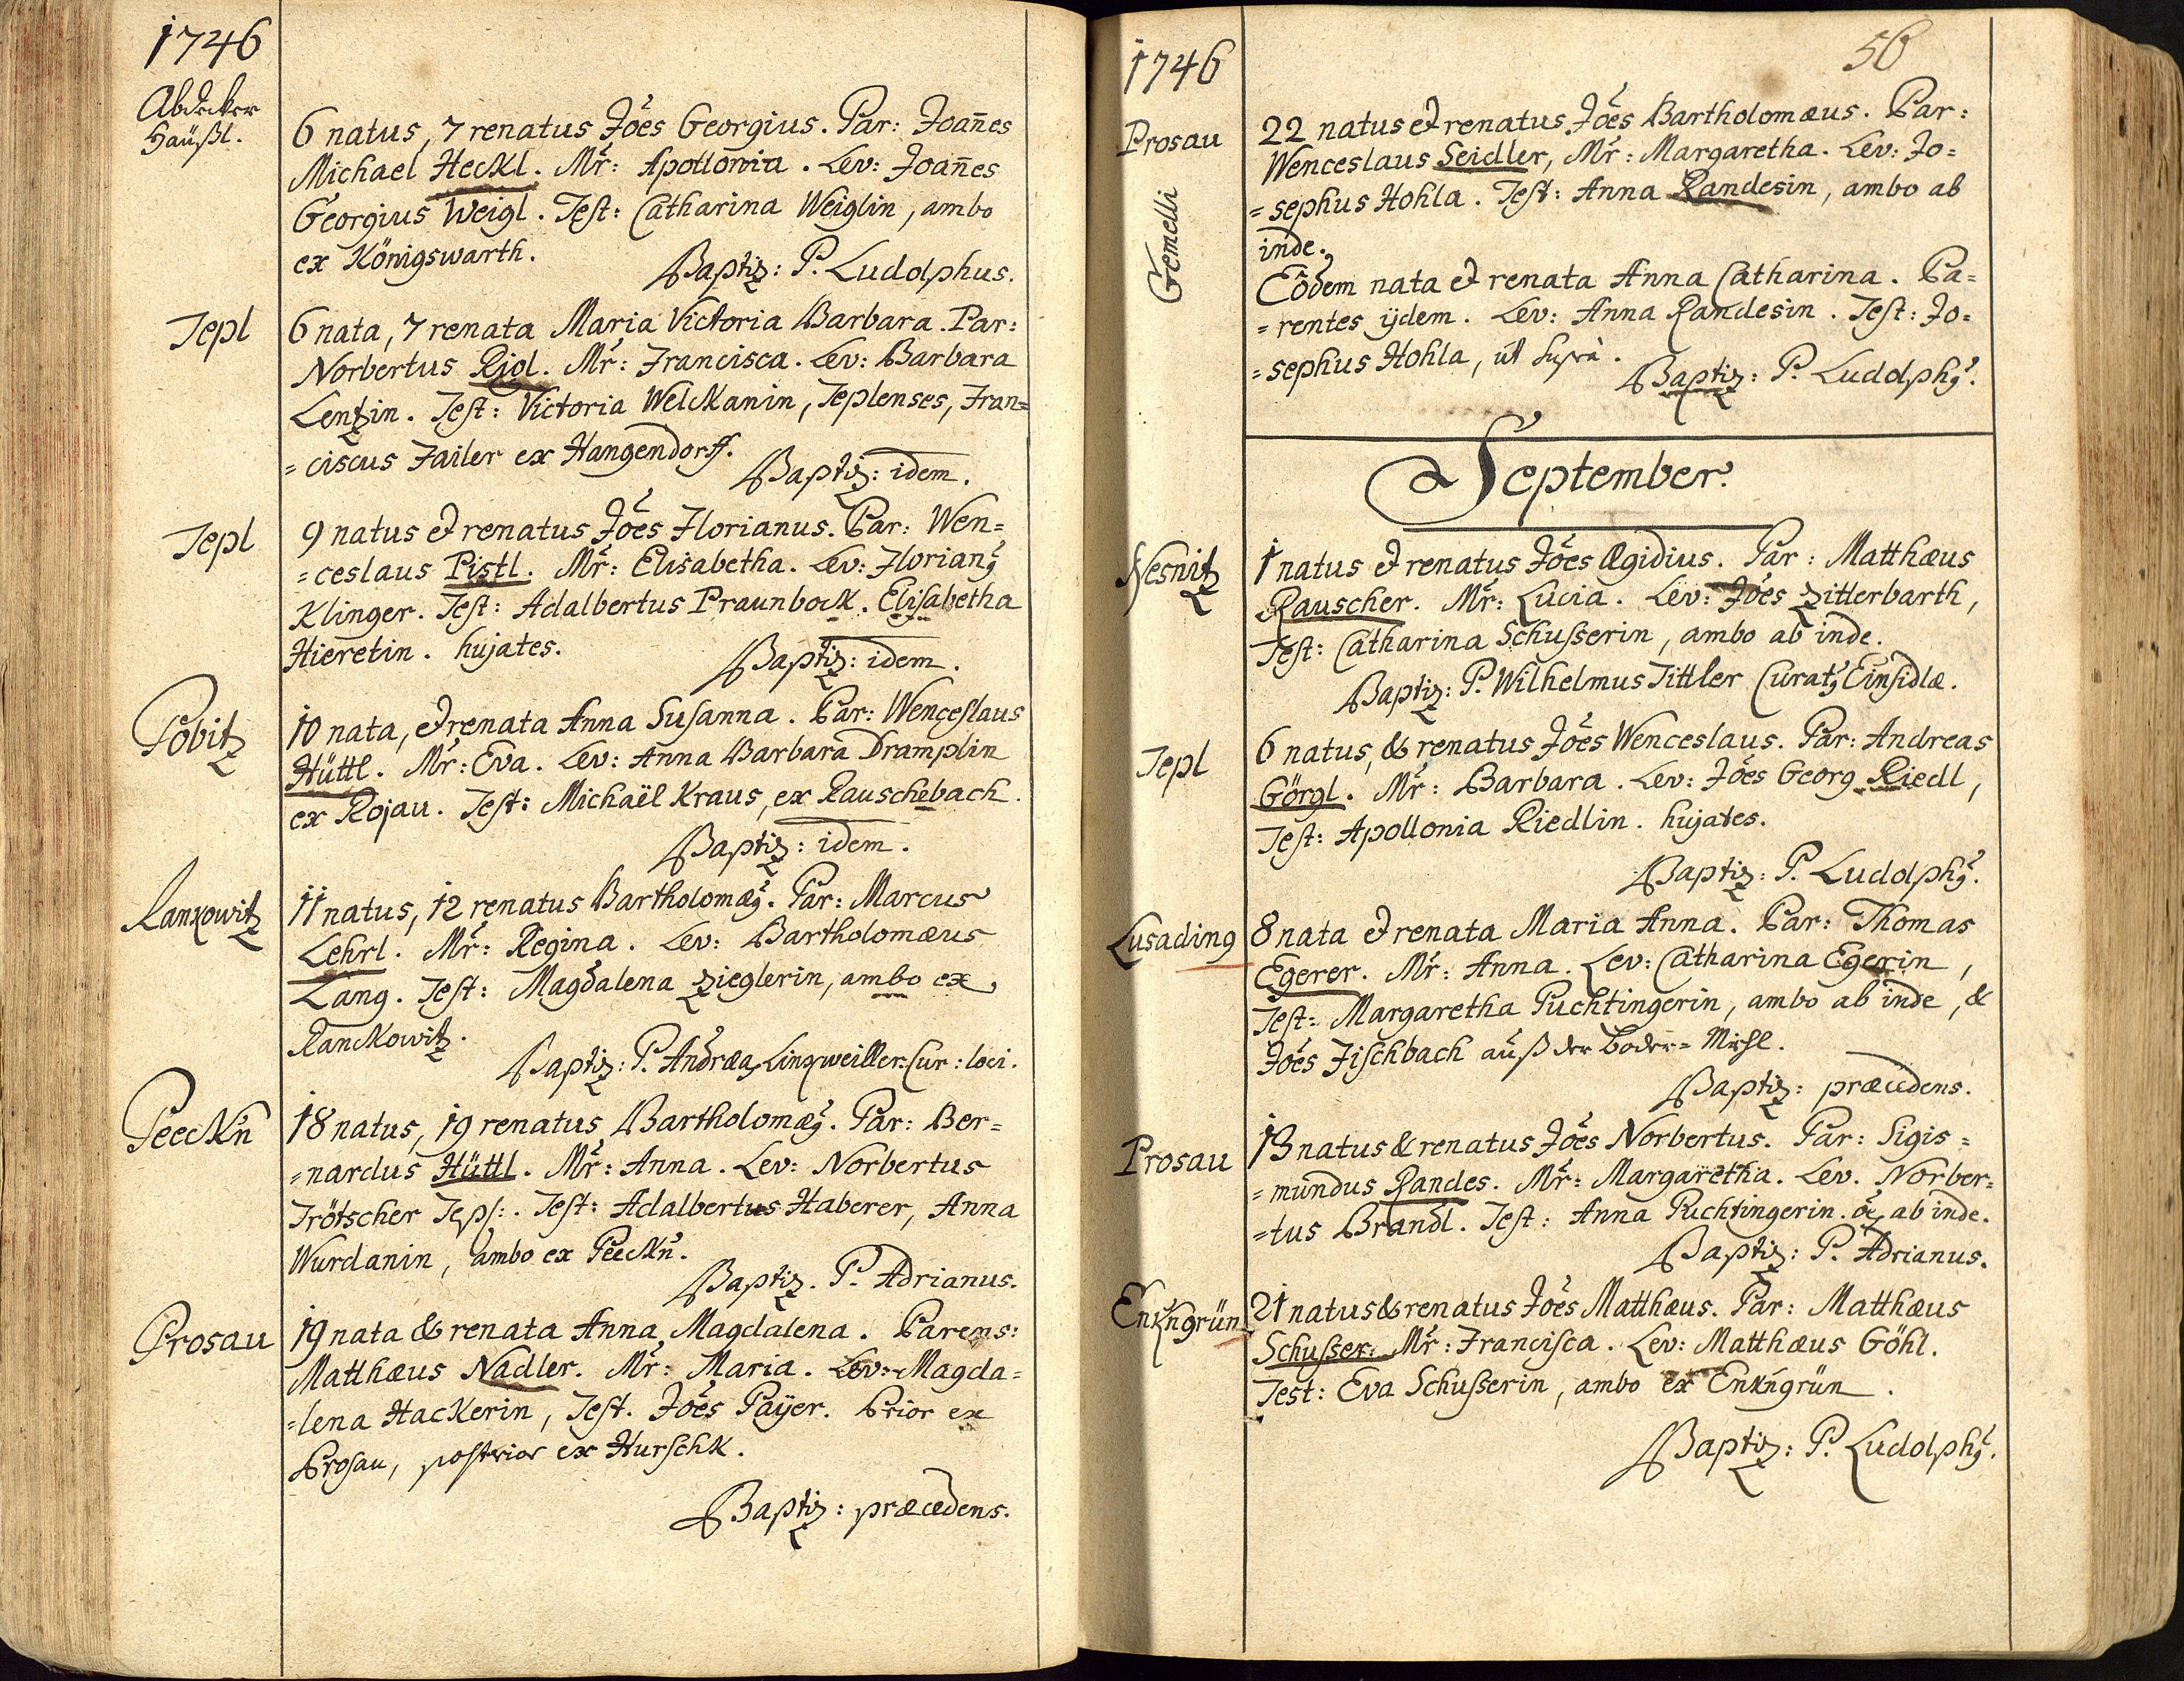 1746
Abdecker
Häußl.
6 natus, 7 renatus Jões Georgius. Par: Joañes
Michael Heckl. Mr: Apollonia. Lev: Joañes
Georgius Weigl. Test: Catharina Weiglin, ambo
ex Königswarth.
Baptiz: P. Ludolphus.
Tepl
6 nata, 7 renata Maria Victoria Barbara. Par:
Norbertus Rigl. Mr: Francisca. Lev: Barbara
Lentzin. Test: Victoria Welckanin, Teplenses, Fran=
=ciscus Failer ex Hangendorff.
Baptiz: idem.
Tepl
9 natus et renatus Jões Florianus. Par: Wen=
=ceslaus Pistl. Mr: Elisabetha. Lev: Florianꝰ
Klinger. Test: Adalbertus Praunbock. Elisabetha
Hieretin. hujates.
Baptiz: idem.
Pobitz
10 nata, et renata Anna Susanna. Par: Wenceslaus
Hüttl. Mr: Eva. Lev: Anna Barbara Dramplin
ex Rojau. Test: Michaël Kraus, ex Rauschebach.
Baptiz: idem.
Rankowitz
11 natus, 12 renatus Bartholomæꝰ. Par: Marcus
Lehrl. Mr: Regina. Lev: Bartholomæus
Lang. Test: Magdalena Zieglerin, ambo ex
Ranckowitz.
Baptiz: P. Andræas Linqweiller. Cur: loci.
Peeckn̄
18 natus, 19 renatus Bartholomæꝰ. Par: Ber=
=nardus Hüttl. Mr: Anna. Lev: Norbertus
Trötscher Tepl:. Test: Adalbertus Haberer, Anna
Wurdanin, ambo ex Peeckn̄.
Baptiz. P. Adrianus.
Prosau
19 nata & renata Anna Magdalena. Parens:
Matthæus Nadler. Mr: Maria. Lev: Magda=
=lena Hackerin, Test. Jões Paÿer. Prior ex
Prosau, posterior ex Hurschk.
Baptiz: præcedens.
1746
56
Prosau
Gemelli
22 natus et renatus Jões Bartholomæus. Par:
Wenceslaus Seidler, Mr: Margaretha. Lev: Jo=
=sephus Hohla. Test: Anna Randesin, ambo ab
inde.
Eôdem nata et renata Anna Catharina. Pa=
=rentes ÿdem. Lev: Anna Randesin. Test: Jo=
=sephus Hohla, ut suprà.
Baptiz: P. Ludolphꝰ.
September.
Nesnitz
1 natus et renatus Jões Ægidius. Par: Matthæus
Rauscher. Mr: Lucia. Lev: Jões Zitterbarth,
Test: Catharina Schusserin, ambo ab inde.
Baptiz: P. Wilhelmus Tittler Curatꝰ Einsidlæ.
Tepl
6 natus, & renatus Jões Wenceslaus. Par: Andreas
Görgl. Mr: Barbara. Lev: Jões Georg Riedl,
Test: Apollonia Riedlin. hujates.
Baptiz: P. Ludolphꝰ.
Lusading
8 nata et renata Maria Anna. Par: Thomas
Egerer. Mr: Anna. Lev: Catharina Egerin,
Test: Margaretha Puchtingerin, ambo ab inde, &
Jões Fischbach auß der Boder=Mühl.
Baptiz: præcedens.
Prosau
13 natus & renatus Jões Norbertus. Par: Sigis=
=mundus Randes. Mr: Margaretha. Lev. Norber=
=tus Brandl. Test: Anna Puchtingerin. oẽs ab inde.
Baptiz: P. Adrianus.
Enkngrün
21 natus & renatus Jões Matthæus. Par: Matthæus
Schusser. Mr: Francisca. Lev: Matthæus Göhl.
Test: Eva Schusserin, ambo ex Enkngrün.
Baptiz: P. Ludolphꝰ.